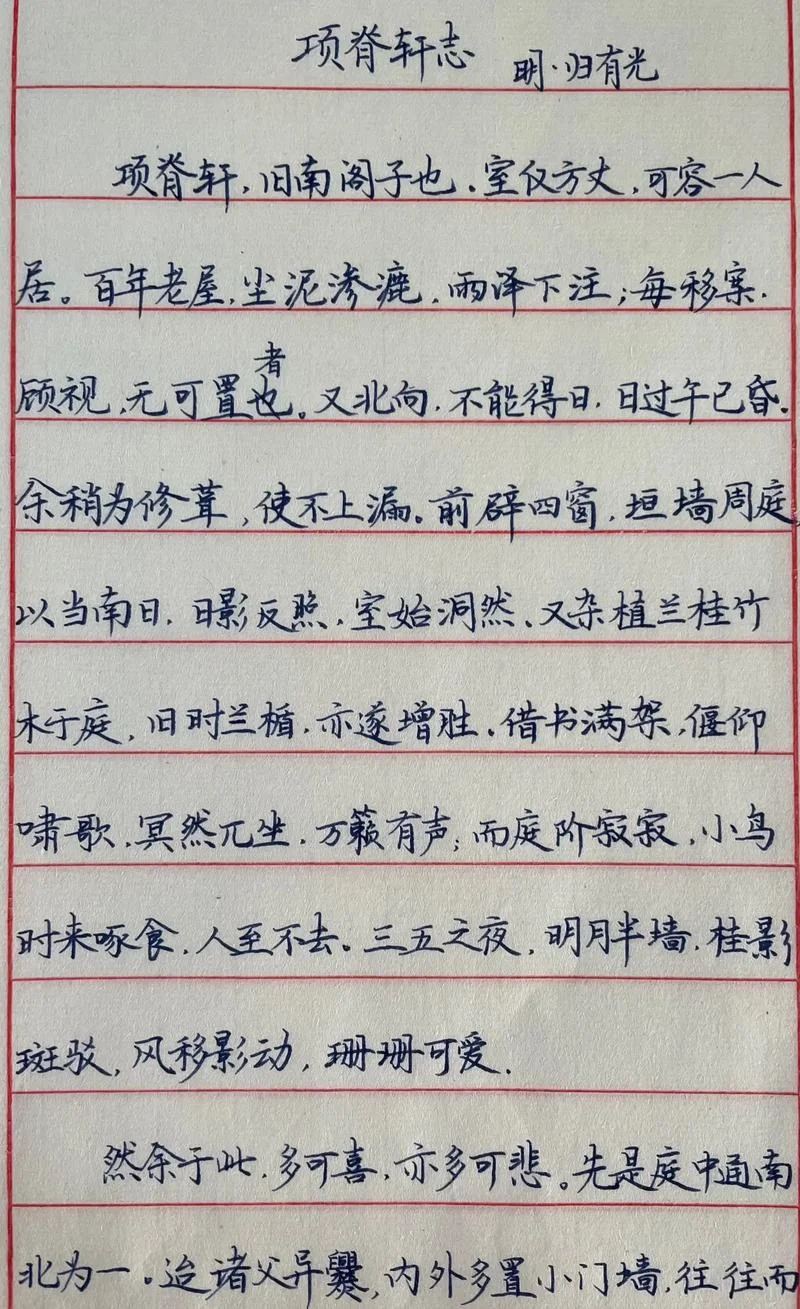 项脊轩志 明·归有光
项脊轩，旧南阁子也。室仅方丈，可容一人
居。百年老屋，尘泥渗漉，雨泽下注；每移案，
者
顾视，无可置也。又北向，不能得日，日过午已昏。
余稍为修葺，使不上漏。前辟四窗，垣墙周庭，
以当南日，日影反照，室始洞然。又杂植兰桂竹
木于庭，旧时兰楯，亦遂增胜。借书满架，偃仰
啸歌，冥然兀坐，万籁有声；而庭阶寂寂，小鸟
时来啄食，人至不去。三五之夜，明月半墙，桂影
斑驳，风移影动，珊珊可爱。
然余于此，多可喜，亦多可悲。先是庭中通南
北为一。迨诸父异爨，内外多置小门墙，往往而